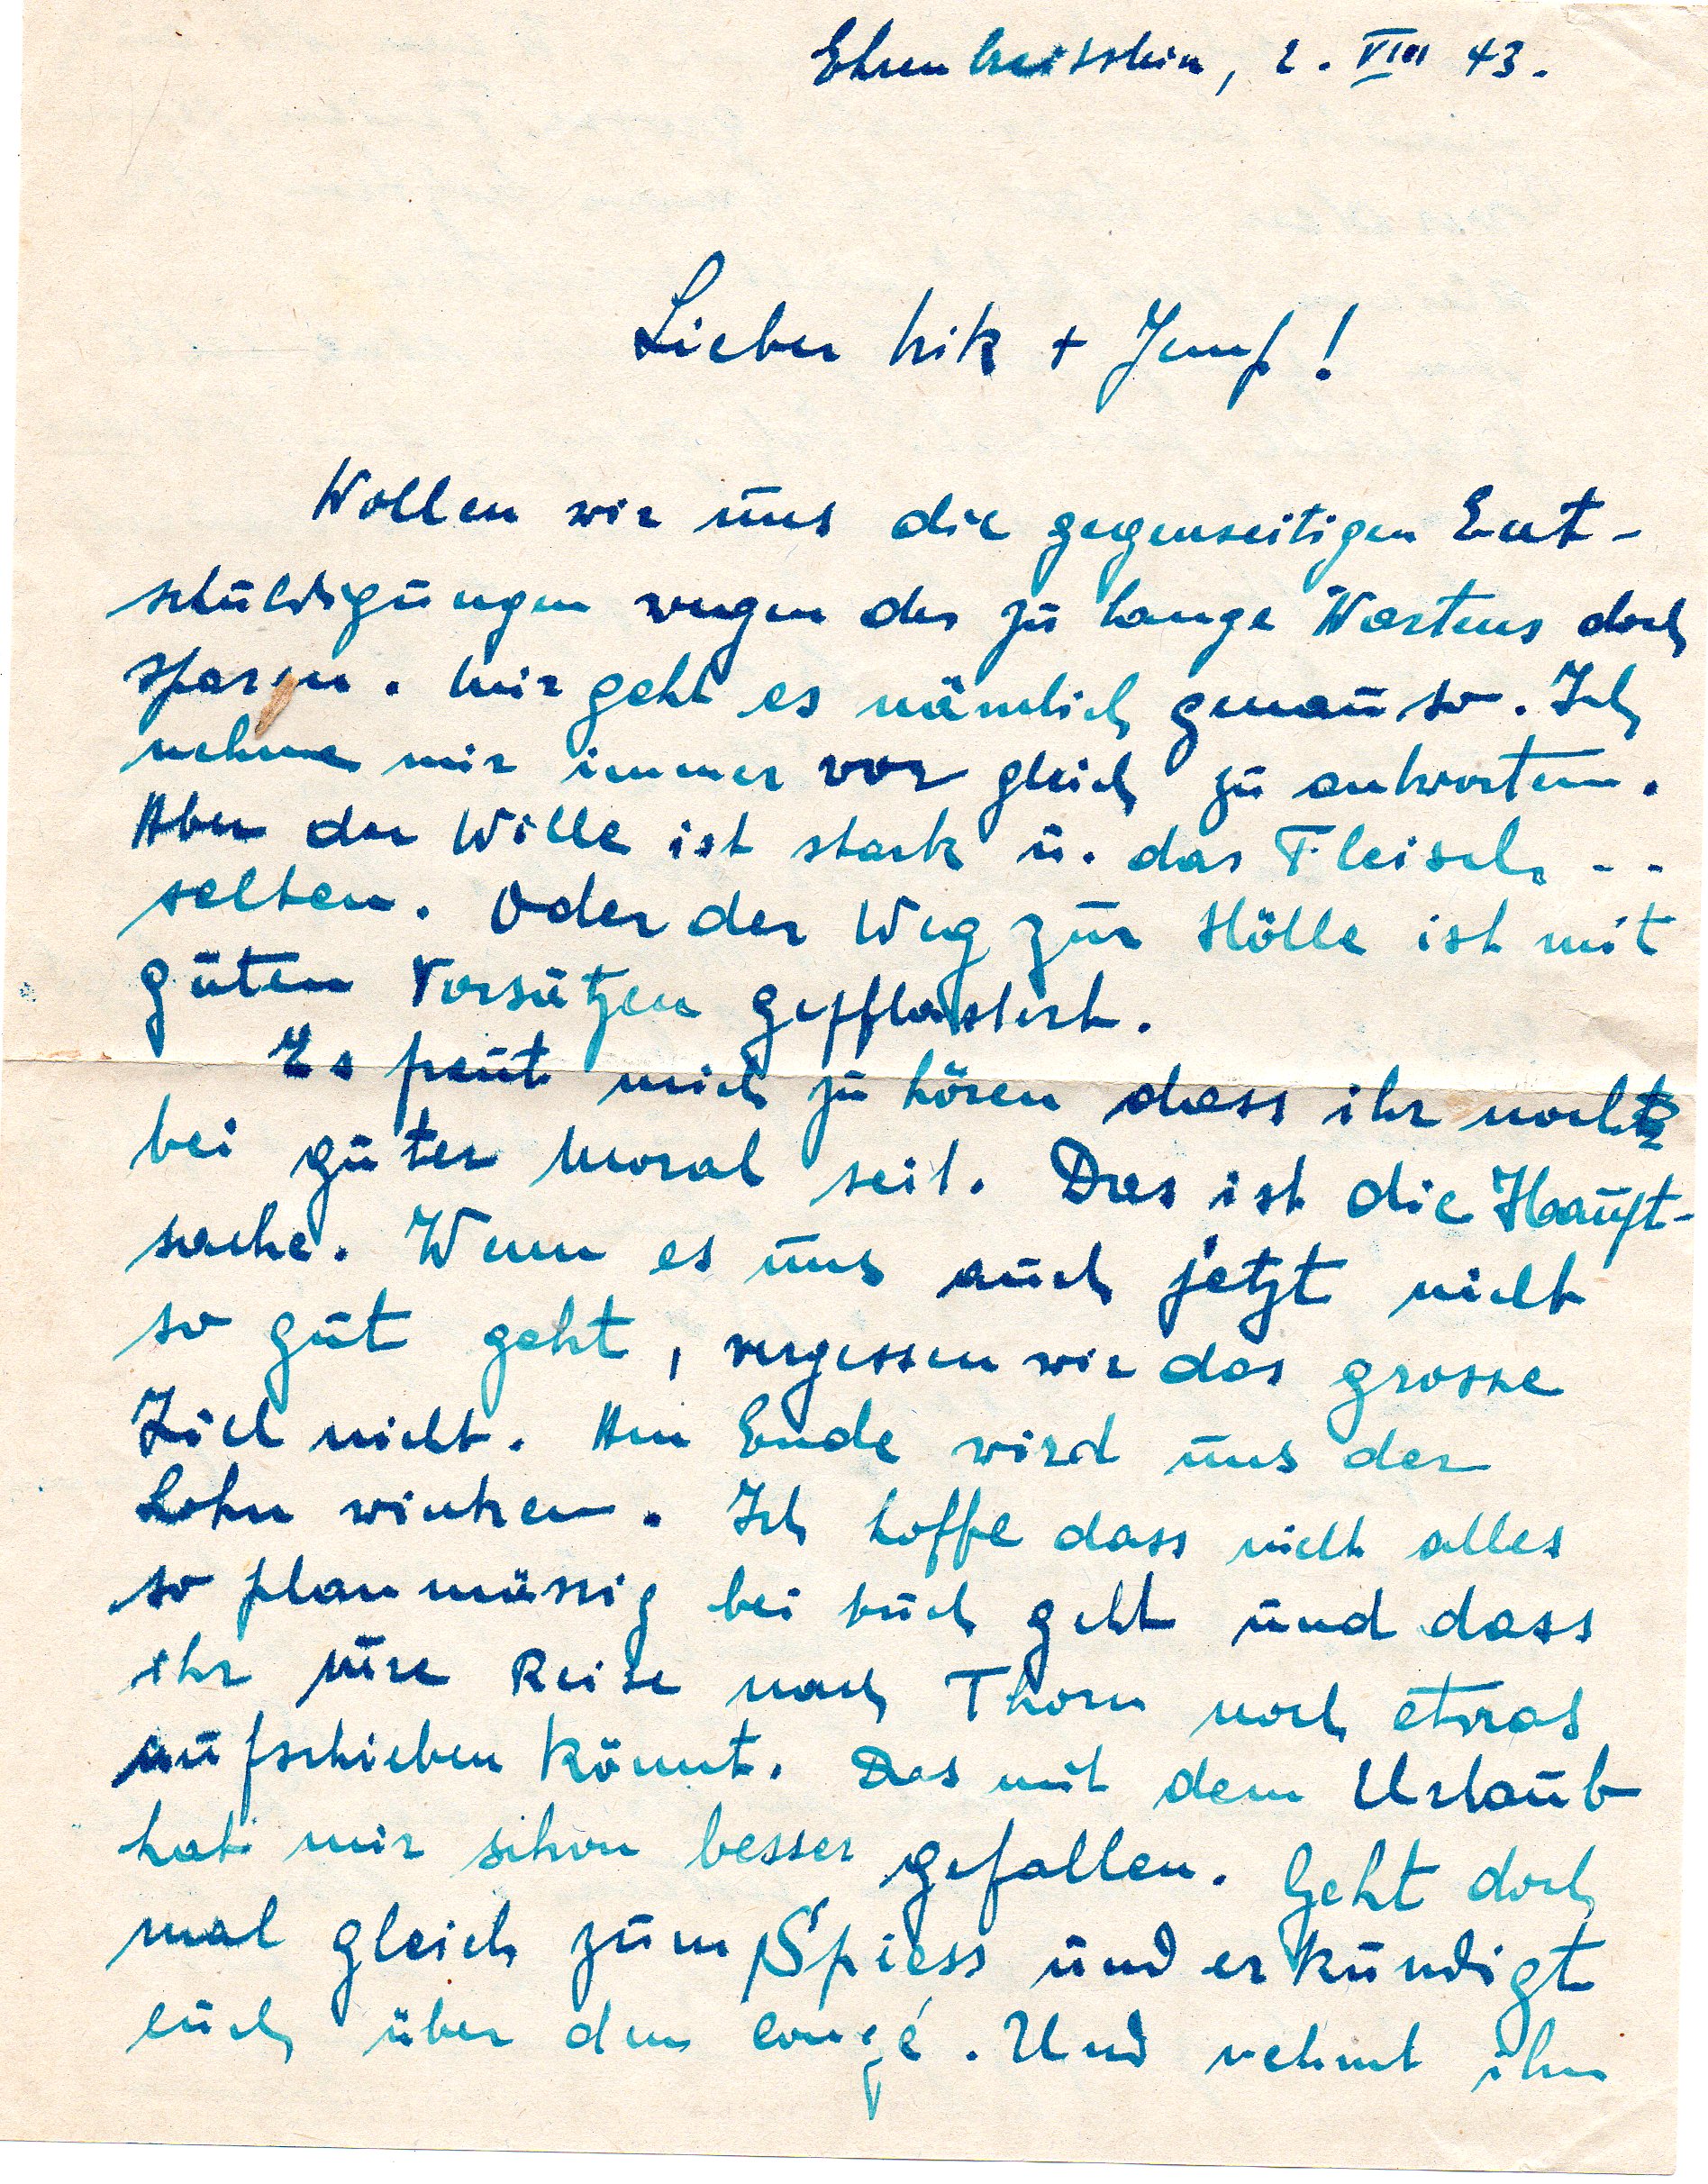 Ehrenbreitstein, 2. VIII 43.
Lieber Nik + Jemp!
Wollen wir uns die gegenseitigen Ent-
schuldigungen wegen des zu lange Wartens doch
sparen. Mir geht es nämlich genau so. Ich
nehme mir immer vor gleich zu antworten.
Aber der Wille ist stark u. das Fleisch ..
selten. Oder der Weg zur Hölle ist mit
guten Vorsätzen gepflastert.
Es freut mich zu hören dass ihr noch
bei guter Moral seit. Das ist die Haupt-
sache. Wenn es uns auch jetzt nicht
so gut geht, vergessen wir das grosse
Ziel nicht. Am Ende wird uns der
Lohn winken. Ich hoffe dass nicht alles
so planmässig bei euch geht und dass
ihr eure Reise nach Thorn noch etwas
aufschieben könnt. Das mit dem Urlaub
hat mir schon besser gefallen. Geht doch
mal gleich zum Spiess und erkundigt
euch über den congé. Und nehmt ihn